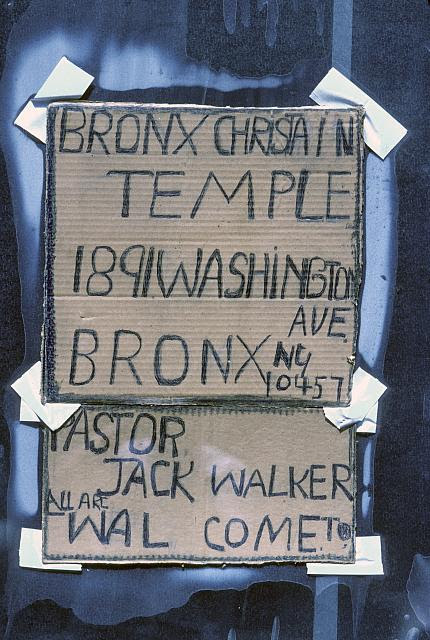 BRONX CHRISTAIN
TEMPLE
1891 WASHINGTON
AVE
BRONX NY
10457
PASTOR
JACK WALKER
ALL ARE
WAL COME TO